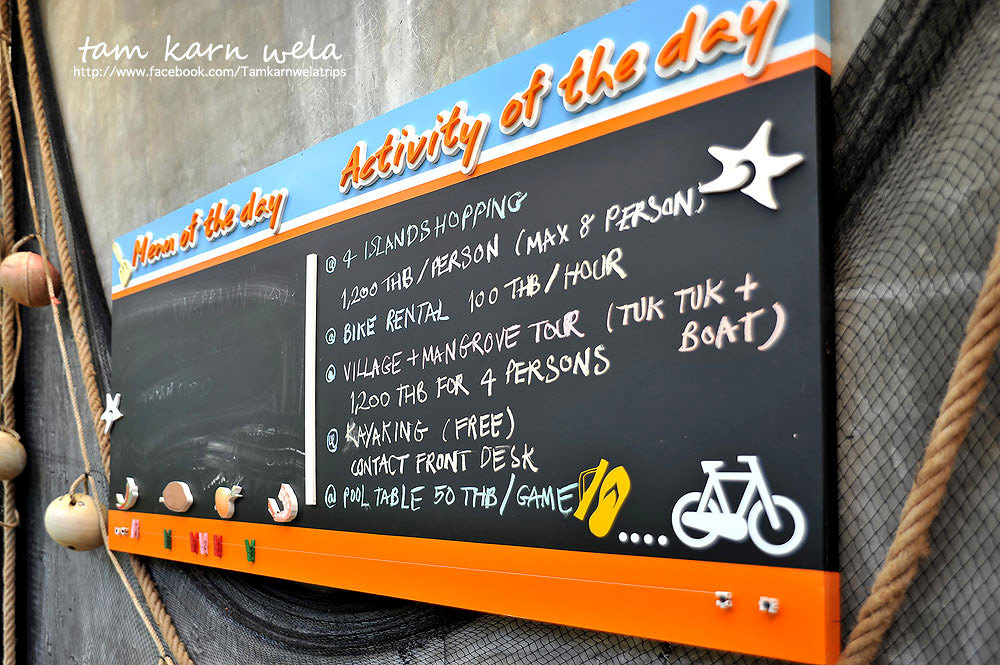 tam karn wela
http://www.facebook.com/Tamkarnwelatrips
Menu of the day
Activity of the day
@ 4 ISLANDSHOPPING
1,200 THB/PERSON (MAX 8 PERSON)
@ BIKE RENTAL 100 THB/HOUR
@ VILLAGE + MANGROVE TOUR (TUK TUK + BOAT)
1,200 THB FOR 4 PERSONS
@ KAYAKING (FREE)
CONTACT FRONT DESK
@ POOL TABLE 50 THB/GAME